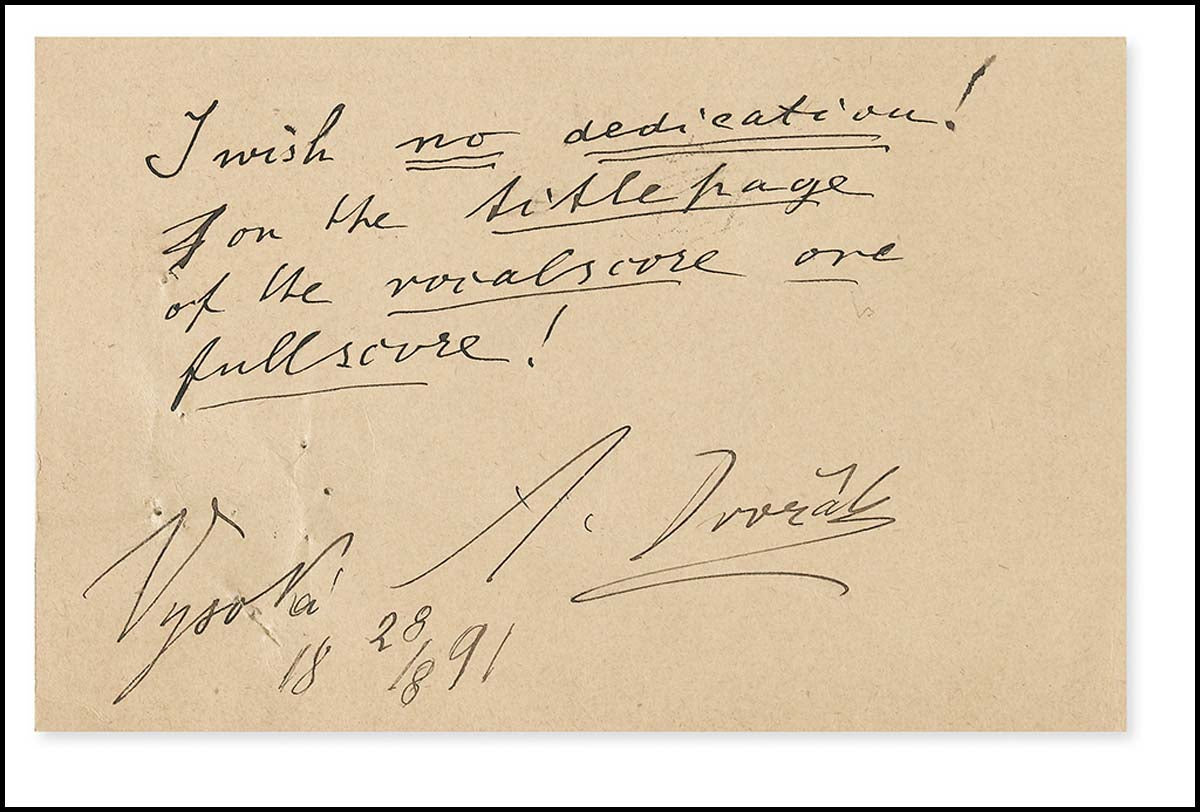 I wish no dedication!
on the titlepage
of the vocalscore ore
fullscore!
A. Dvořák
Vysoká
18 28/8 91